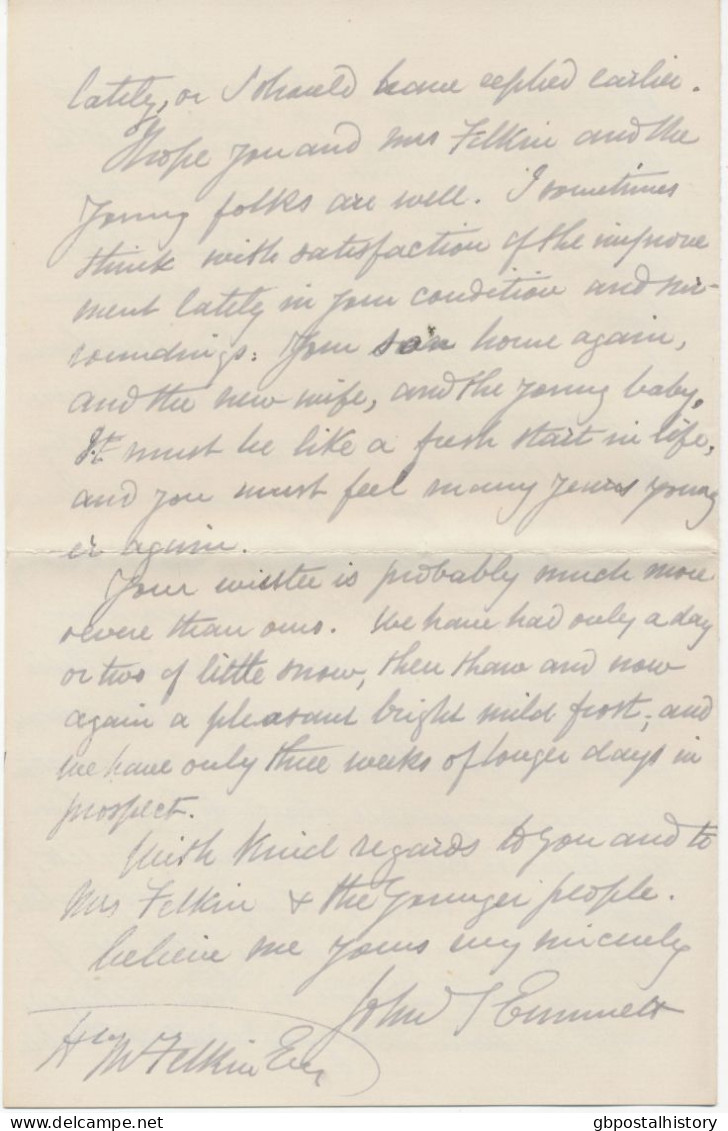 lately, or I should have replied earlier.
I hope you and Mrs Felkin and the
young folks are well. I sometimes
think with satisfaction of the improve
ment lately in your condition and sur-
roundings. Your son home again,
and the new wife, and the young baby.
It must be like a fresh start in life,
and you must feel many years young
er again.
Your winter is probably much more
severe than ours. We have had only a day
or two of little snow, then thaw and now
again a pleasant bright mild frost; and
we have only three weeks of longer days in
prospect.
With kind regards to you and to
Mrs Felkin & the younger people.
believe me yours very sincerely
John Emmett
Hy M Felkin Esq
gbpostalhistory